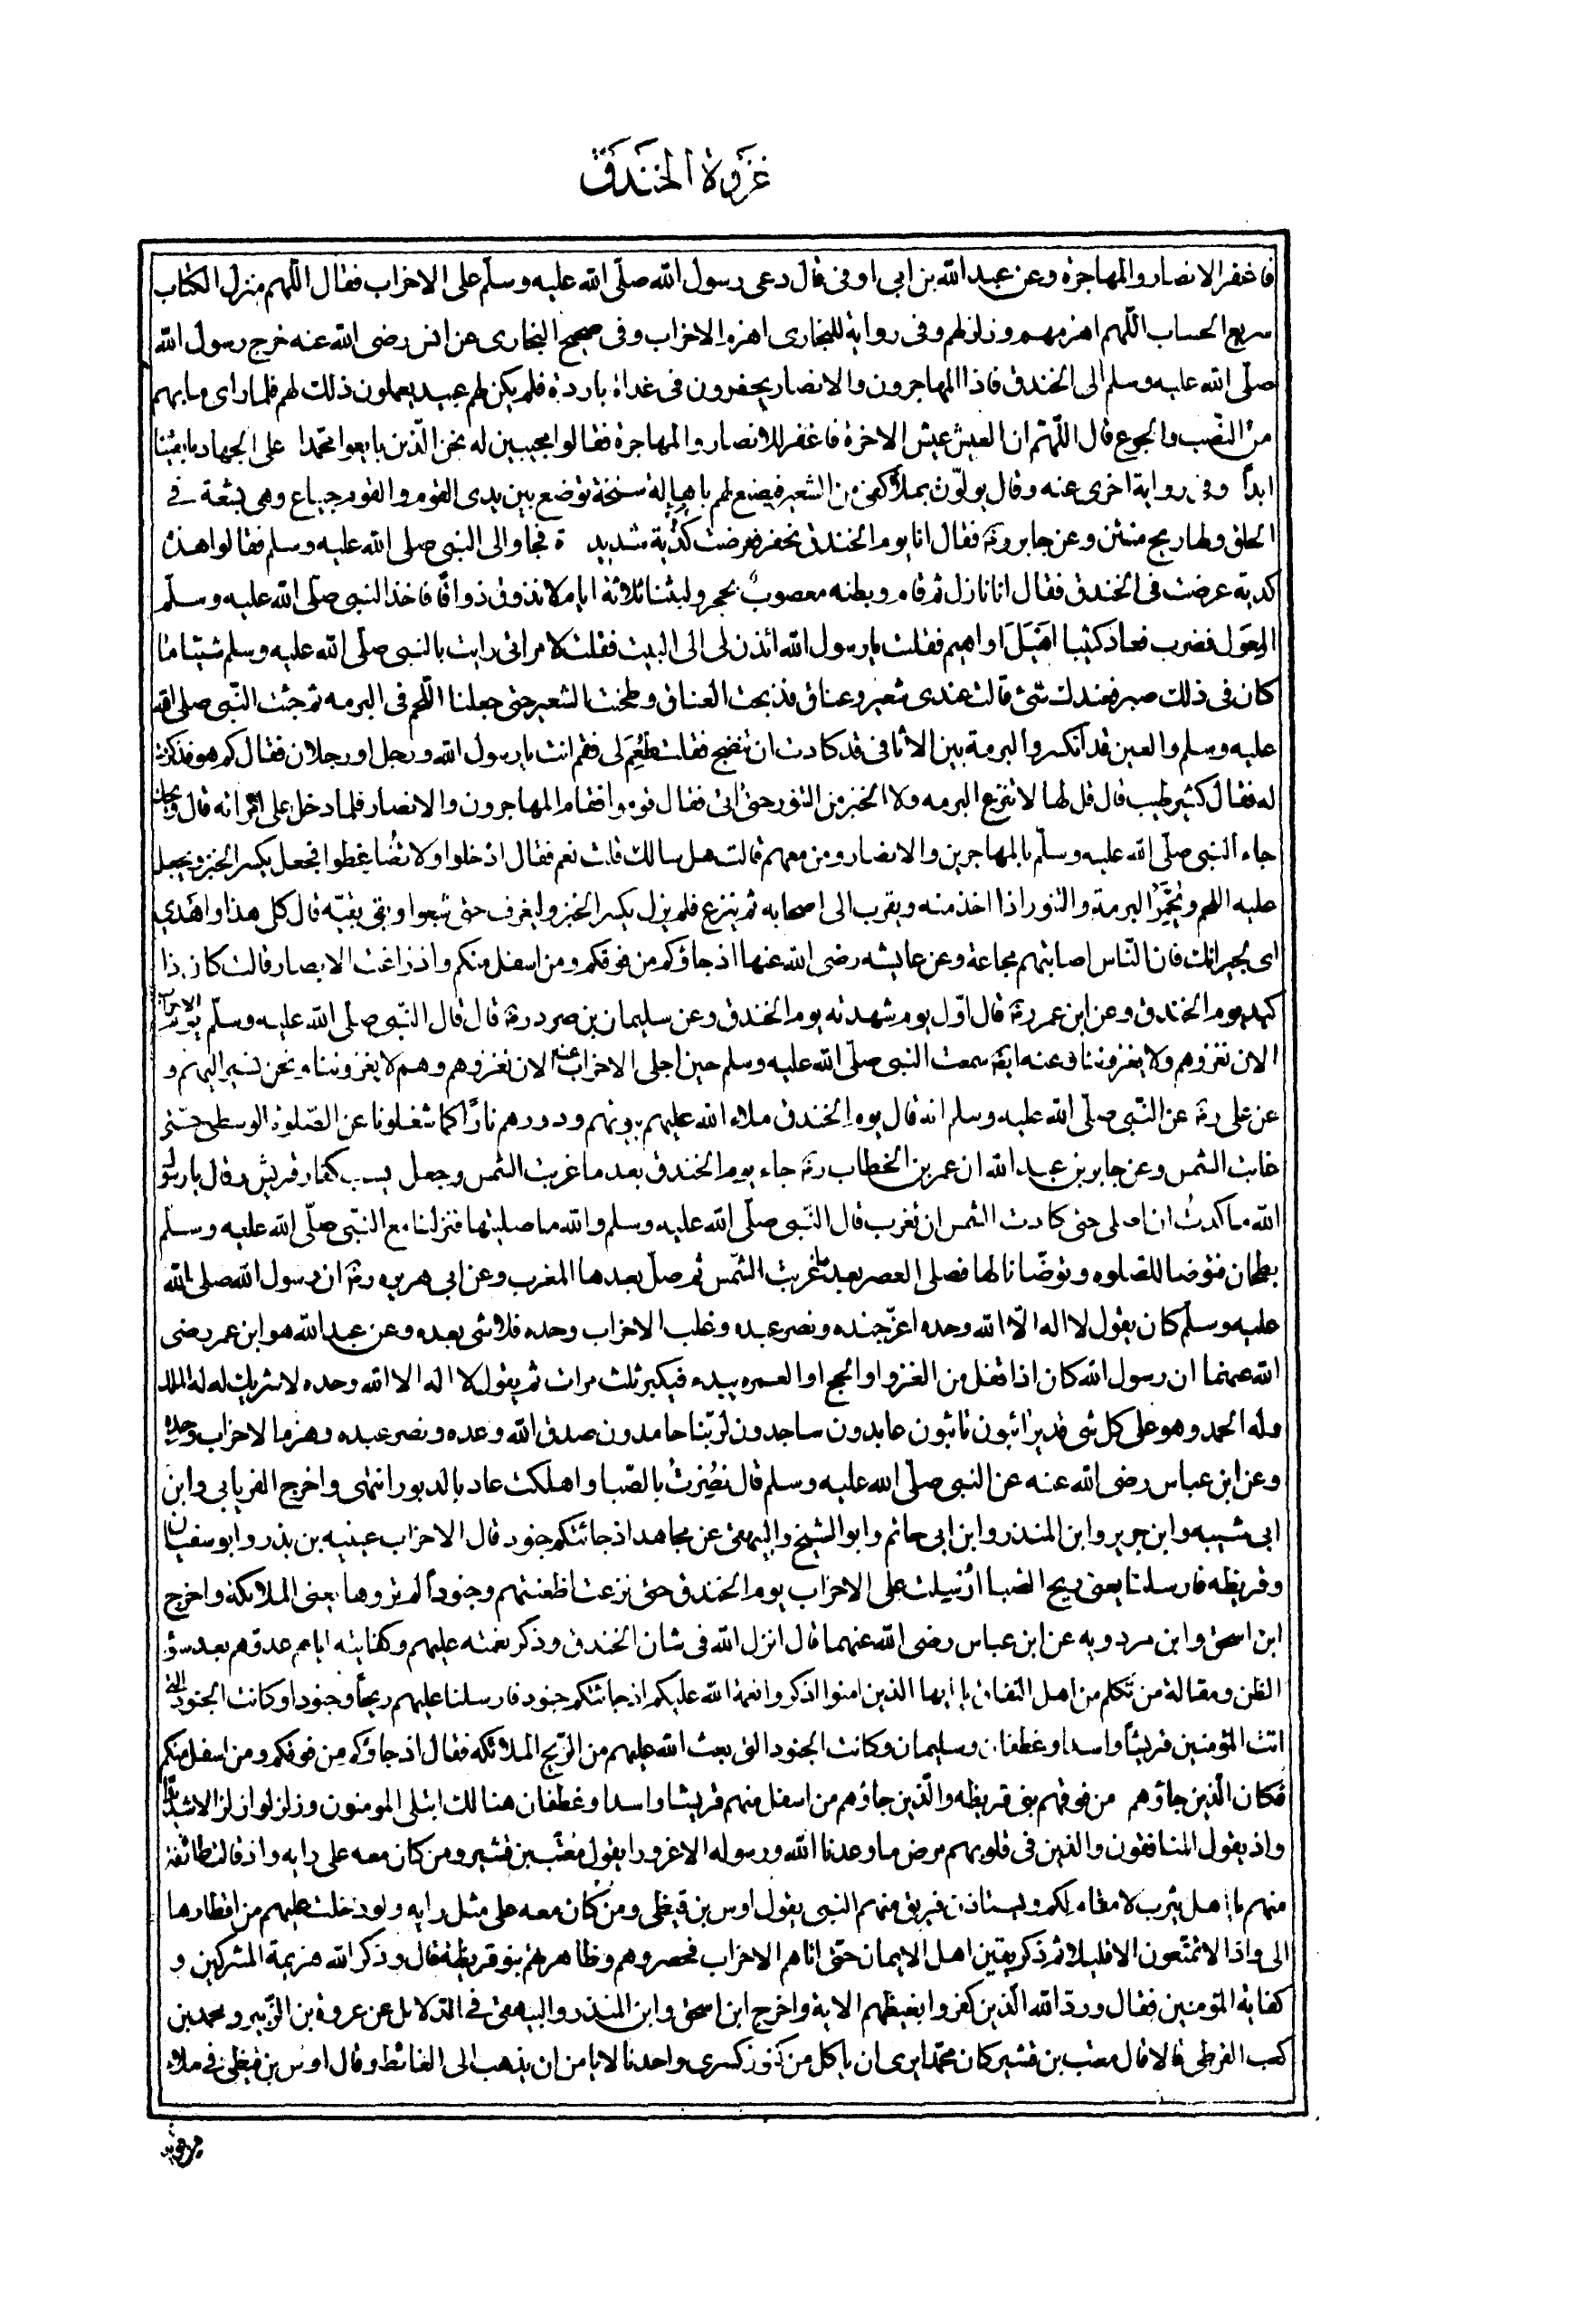 غزوة الخندق
فاغفر الانصار والمهاجرة وعن عبد الله بن ابي اوفى قال دعى رسول الله صلّى الله عليه وسلّم على الاحزاب فقال اللّهم منزل الكتاب
سريع الحساب اللّهم اهزمهم وزلزلهم وفى رواية للبخارى اهزم الاحزاب وفى صحيح البخارى عن انس رضى الله عنه خرج رسول الله
صلّى الله عليه وسلم الى الخندق فاذا المهاجرون والانصار يحفرون فى غداة باردة فلم يكن لهم عبيد يعملون ذلك لهم فلما راى ما بهم
من النصب والجوع قال اللّهمّ ان العيش عيش الاخرة فاغفر للانصار والمهاجرة فقالوا مجيبين له نحن الّذين بايعوا محمّدا على الجهاد ما بقينا
ابداً وفى رواية اخرى عنه وقال يؤتون بملأ كفى من الشعير فيصنع لهم باهالة سنخة توضع بين يدى القوم والقوم جياع وهى بشعة فى
الحلق ولها ريح منتن وعن جابر رضه فقال انا يوم الخندق نحفر فعرضت كدية شديدة فجاوا الى النبى صلى الله عليه وسلم فقالوا هذه
كدية عرضت فى الخندق فقال انا نازل ثم قام وبطنه معصوبٌ بحجر ولبثنا ثلاثة ايام لا نذوق ذواقًا فاخذ النبى صلّى الله عليه وسلّم
المِعوَل فضرب فعاد كثيبا اَهْيَلَ او اهيم فقلت يا رسول الله ائذن لى الى البيت فقلت لامراتى رايت بالنبى صلّى الله عليه وسلم شيئا ما
كان فى ذلك صبر فعندك شئ قالت عندى شعير وعناق فذبحت العناق وطحنت الشعير حتى جعلنا اللّحم فى البرمه ثم جئت النّبى صلى الله
عليه وسلم والعين قد انكسر والبرمة بين الاثافى قد كادت ان تنضج فقلت طُعَيِّم لى فقم انت يا رسول الله ورجل او رجلان فقال كم هو فذكرت
له فقال كثير طيب قال قل لها لا تنزع البرمه ولا الخبز من التنور حتى اتى فقال قوموا فقام المهاجرون والانصار فلما دخل على امراته قال ويحك
جاء النبى صلّى الله عليه وسلّم بالمهاجرين والانصار ومن معهم قالت هل سالك قلت نعم فقال ادخلوا ولا تضاغطوا فجعل يكسر الخبز ويجعل
عليه اللحم ويُخمّر البرمة والتنور اذا اخذ منه ويقرب الى اصحابه ثم ينزع فلم يزل يكسر الخبز ويغرف حتى شبعوا وبقى بقيّه قال كلى هذا واهدى
اى لجيرانك فان النّاس اصابتهم مجاعة وعن عايشه رضى الله عنها اذ جاؤكم من فوقكم ومن اسفل منكم واذ زاغت الابصار قالت كان ذا
كهم يوم الخندق وعن ابن عمر رضه قال اوّل يوم شهدته يوم الخندق وعن سليمان بن صرد رضه قال قال النّبى صلى الله عليه وسلّم يوم الاحزاب
الان نغزوهم ولا يغزوننا وعنه ايضه سمعت النبى صلّى الله عليه وسلم حين اجلى الاحزاب عنه الان نغزوهم وهم لا يغزوننا ونحن نسير اليهم و
عن على رضه عن النّبى صلّى الله عليه وسلم انه قال يوم الخندق ملاء الله عليهم بيوتهم ودورهم نارًا كما شغلونا عن الصّلوة الوسطى حتّى
غابت الشمس وعن جابر بن عبد الله ان عمر بن الخطاب رضه جاء يوم الخندق بعد ما غربت الشمس وجعل يسب كفار قريش وقال يا رسول
الله ما كدتُ ان اصلى حتى كادت الشمس ان تغرب قال النّبى صلّى الله عليه وسلم والله ما صليتها فنزلنا مع النّبى صلّى الله عليه وسلّم
بطحان فتوضا للصلوه وتوضّانا لها فصلى العصر بعد ما غربت الشّمس ثم صلّ بعدها المغرب وعن ابى هريره رضه ان رسول الله صلى الله
عليه وسلّم كان يقول لا اله الّا الله وحده اعزّ جنده ونصر عبده وغلب الاحزاب وحده فلا شى بعده وعن عبد الله هو ابن عمر رضى
الله عنهما ان رسول الله كان اذا قفل من الغزو او الحج او العمره يبدء فيكبر ثلث مرات ثم يقول لا اله الا الله وحده لا شريك له له الملك
وله الحمد وهو على كل شى قدير ائبون تائبون عابدون ساجدون لربّنا حامدون صدق الله وعده ونصر عبده وهزم الاحزاب وحده
وعن ابن عباس رضى الله عنه عن النبى صلّى الله عليه وسلم قال نُصِرْتُ بالصّبا واهلكت عاد بالدبور انتهى واخرج الفريابى وابن
ابى شيبه وابن جرير وابن المنذر وابن ابى حاتم وابو الشيخ والبيهقى عن مجاهد اذ جائتكم جنود قال الاحزاب عيينه بن بدر وابو سفيان
وقريظه فارسلنا يعنى ريح الصبا ارسلت على الاحزاب يوم الخندق حتى نزعت اظعنتهم وجنوداً لم تروها يعنى الملائكة واخرج
ابن اسحق وابن مردويه عن ابن عباس رضى الله عنهما قال انزل الله فى شان الخندق وذكر نعمته عليهم وكفايته اياهم عدوّهم بعد سوء
الظن ومقالة من تكلم من اهل النفاق يا ايها الذين امنوا اذكروا نعمة الله عليكم اذ جائتكم جنود فارسلنا عليهم ريحاً وجنودا وكانت الجنود التى
اتت المؤمنين قريشاً واسدا وغطفان وسليمان وكانت الجنود التى بعث الله عليهم من الرّيح الملائكه فقال اذ جاؤكم من فوقكم ومن اسفل منكم
فكان الّذين جاؤهم من فوقهم بنى قريظه والّذين جاؤهم من اسفل منهم قريشا واسدا وغطفان هنالك ابتلى المومنون وزلزلوا زلزالا شديدا
واذ يقول المنافقون والذين فى قلوبهم مرض ما وعدنا الله ورسوله الا غرورا يقول مُعَتِّب بن قشير ومن كان معه على رايه واذ قالت طائفة
منهم يا اهل يثرب لا مقام لكم ويستاذن فريق منهم النبى يقول اوس بن قيظى ومن كان معه على مثل رايه ولو دخلت عليهم من اقطارها
الى واذا لا تمتّعون الا قليلا ثم ذكر يقين اهل الايمان حتى اتاهم الاحزاب فحصروهم وظاهرهم بنو قريظة قال وذكر الله هزيمة المشركين و
كفاية المؤمنين فقال وردّ الله الّذين كفروا بغيظهم الاية واخرج ابن اسحق وابن المنذر والبيهقى فى الدّلائل عن عروة بن الزّبير ومحمد بن
كعب القرظى قالا قال معتب بن قشير كان محمّدا يرى ان ياكل من كنوز كسرى واحدنا لا يامن ان يذهب الى الغائط وقال اوس بن قيظى فى ملاء